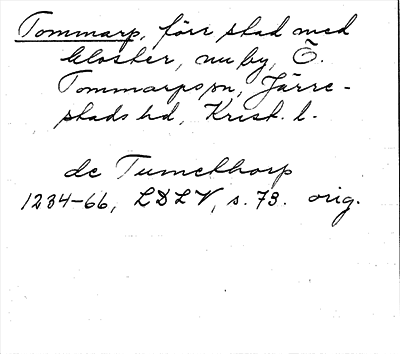 Tommarp, förr stad med
kloster, nu by, Ö.
Tommarps sn, Järre-
stads hd, Krist. l.
de Tumethorp
1234-66, LDLV, s. 73. orig.